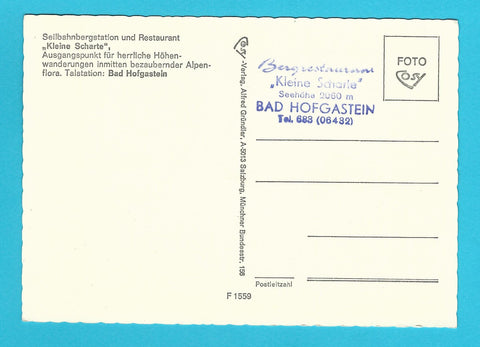 Seilbahnbergstation und Restaurant
„Kleine Scharte",
Ausgangspunkt für herrliche Höhen-
wanderungen inmitten bezaubernder Alpen-
flora. Talstation: Bad Hofgastein
-Verlag, Alfred Gründler, A-5013 Salzburg, Münchner Bundesstr. 156
Bergrestaurant
„Kleine Scharte"
Seehöhe 2060 m
BAD HOFGASTEIN
Tel. 683 (06432)
FOTO
Postleitzahl
F 1559